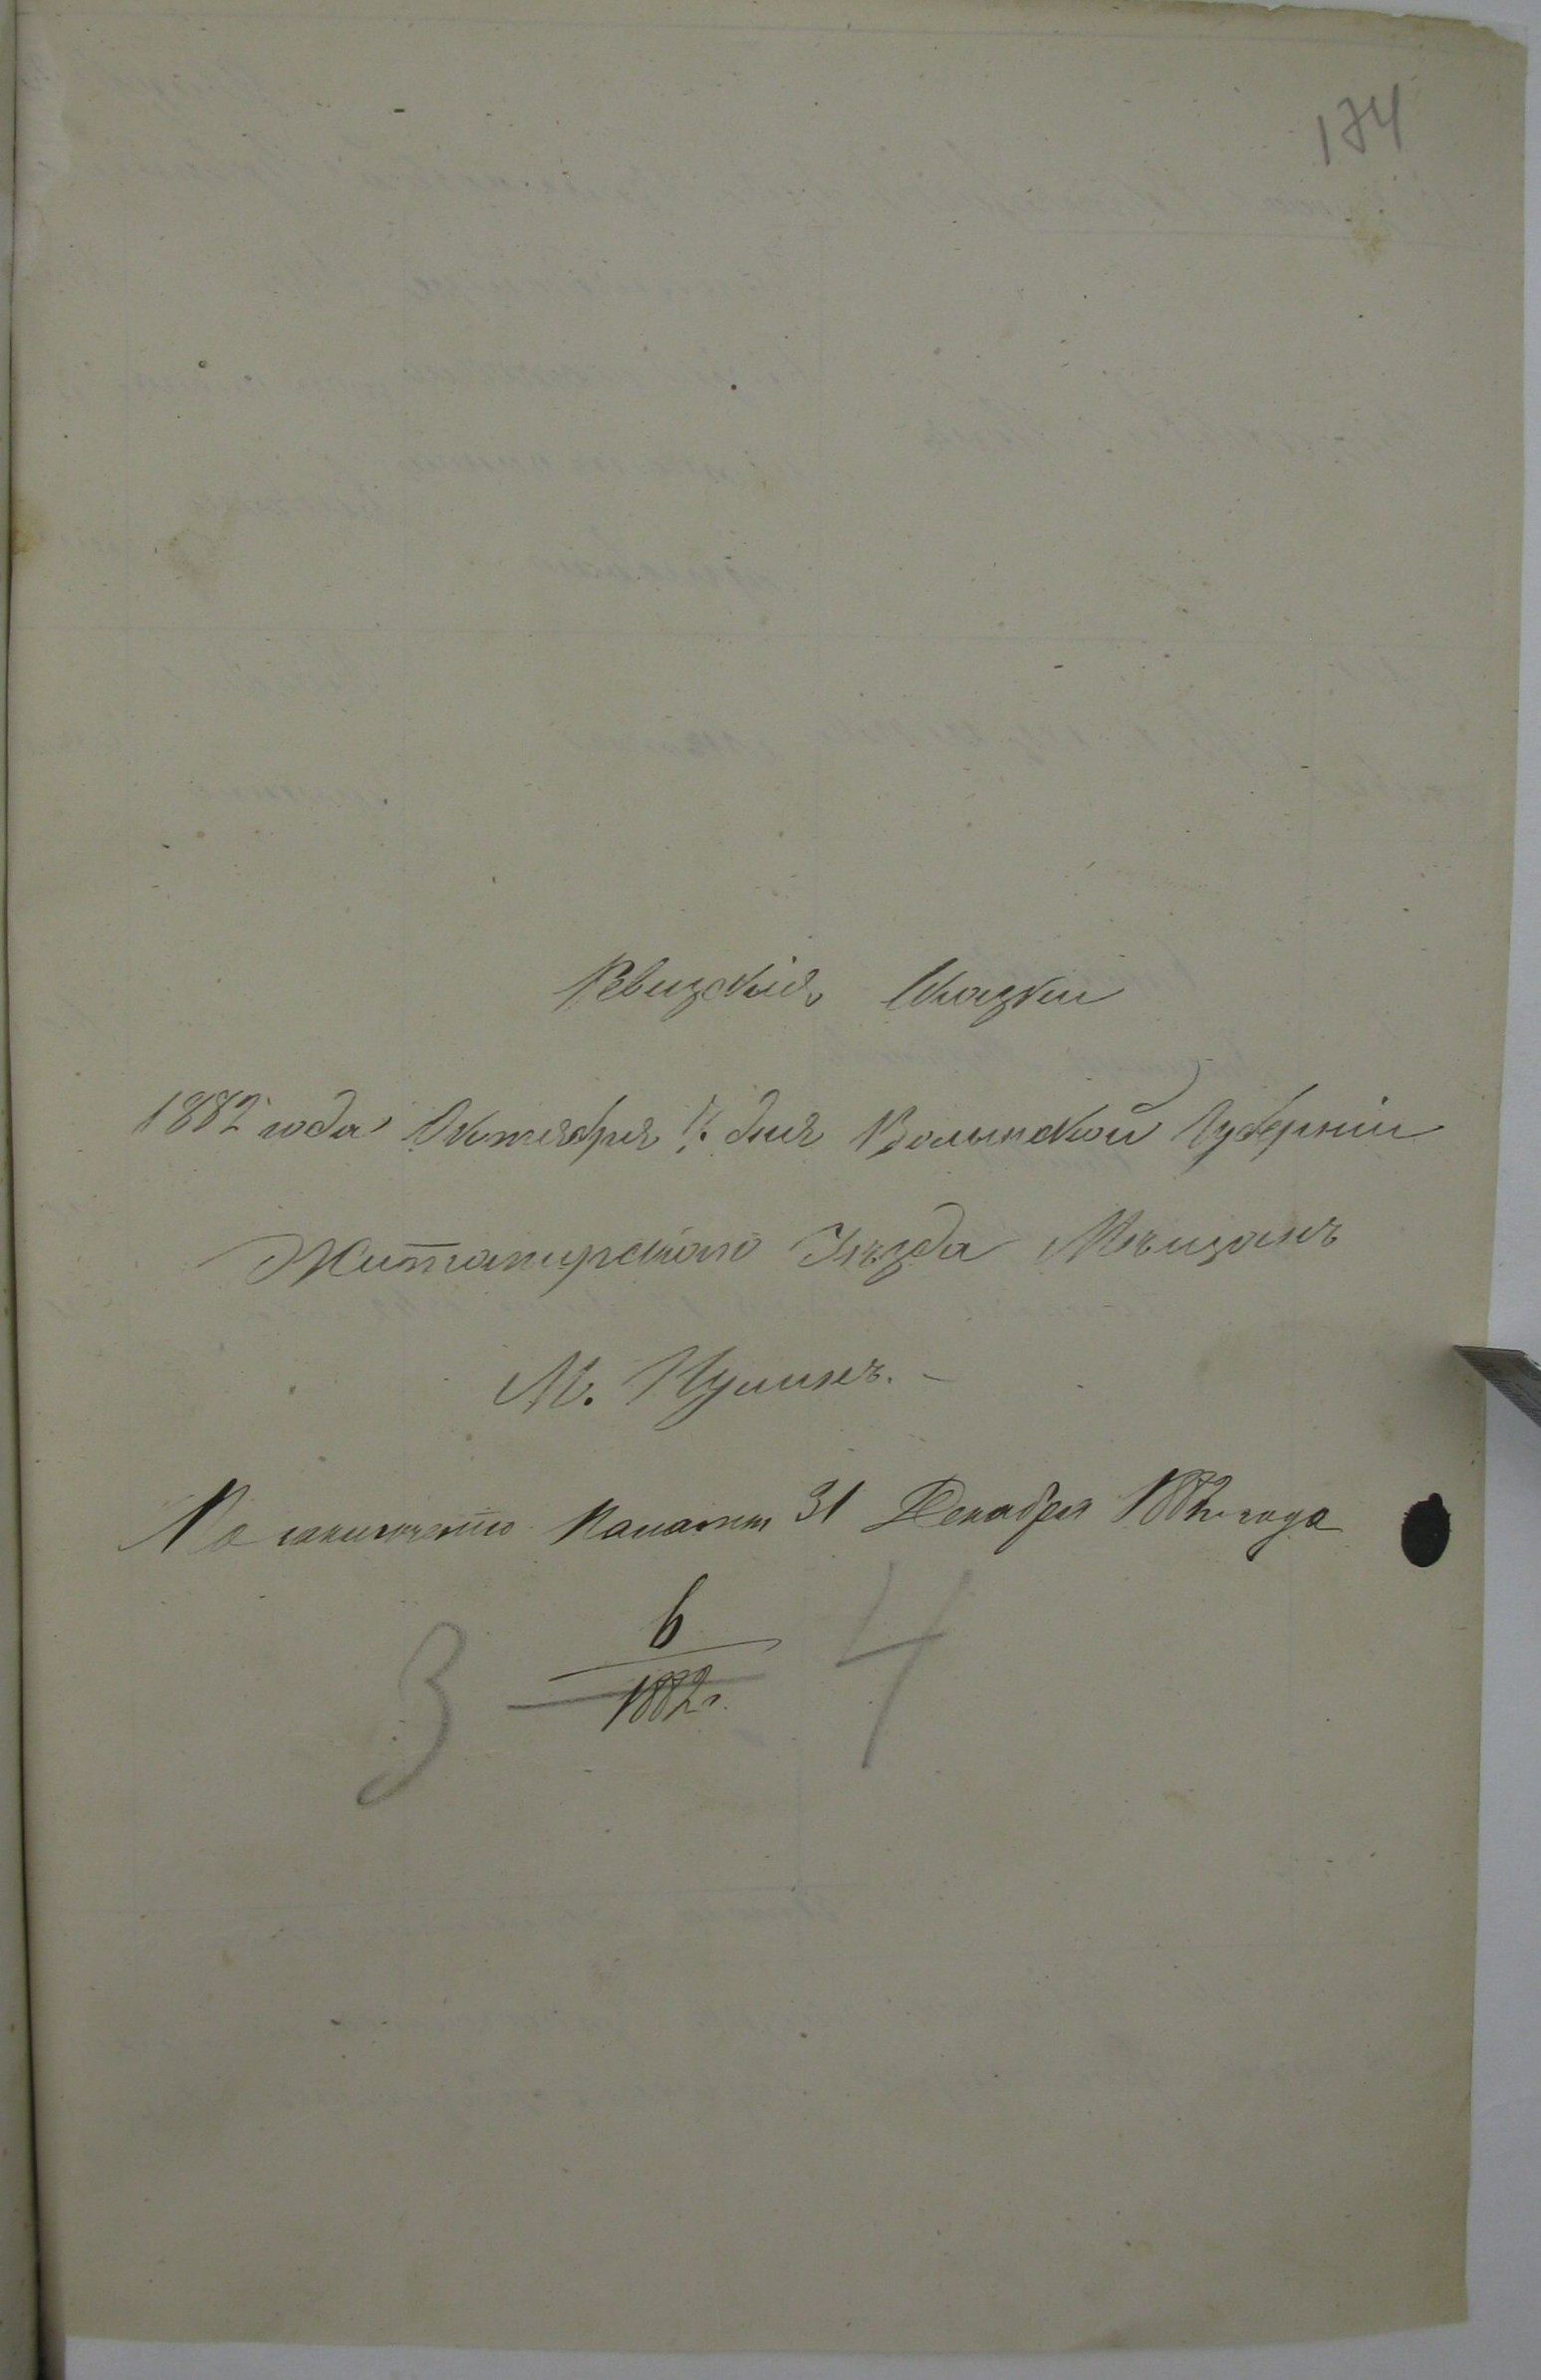 174
Ревизскія Сказки
1882 года Октября 7. дня Волынской Губерніи
Житомирскаго Уѣзда Мѣщанъ
М. Кулинъ. —
По заключенію Палаты 31 Декабря 1882 года
3 6 4
1882 г.